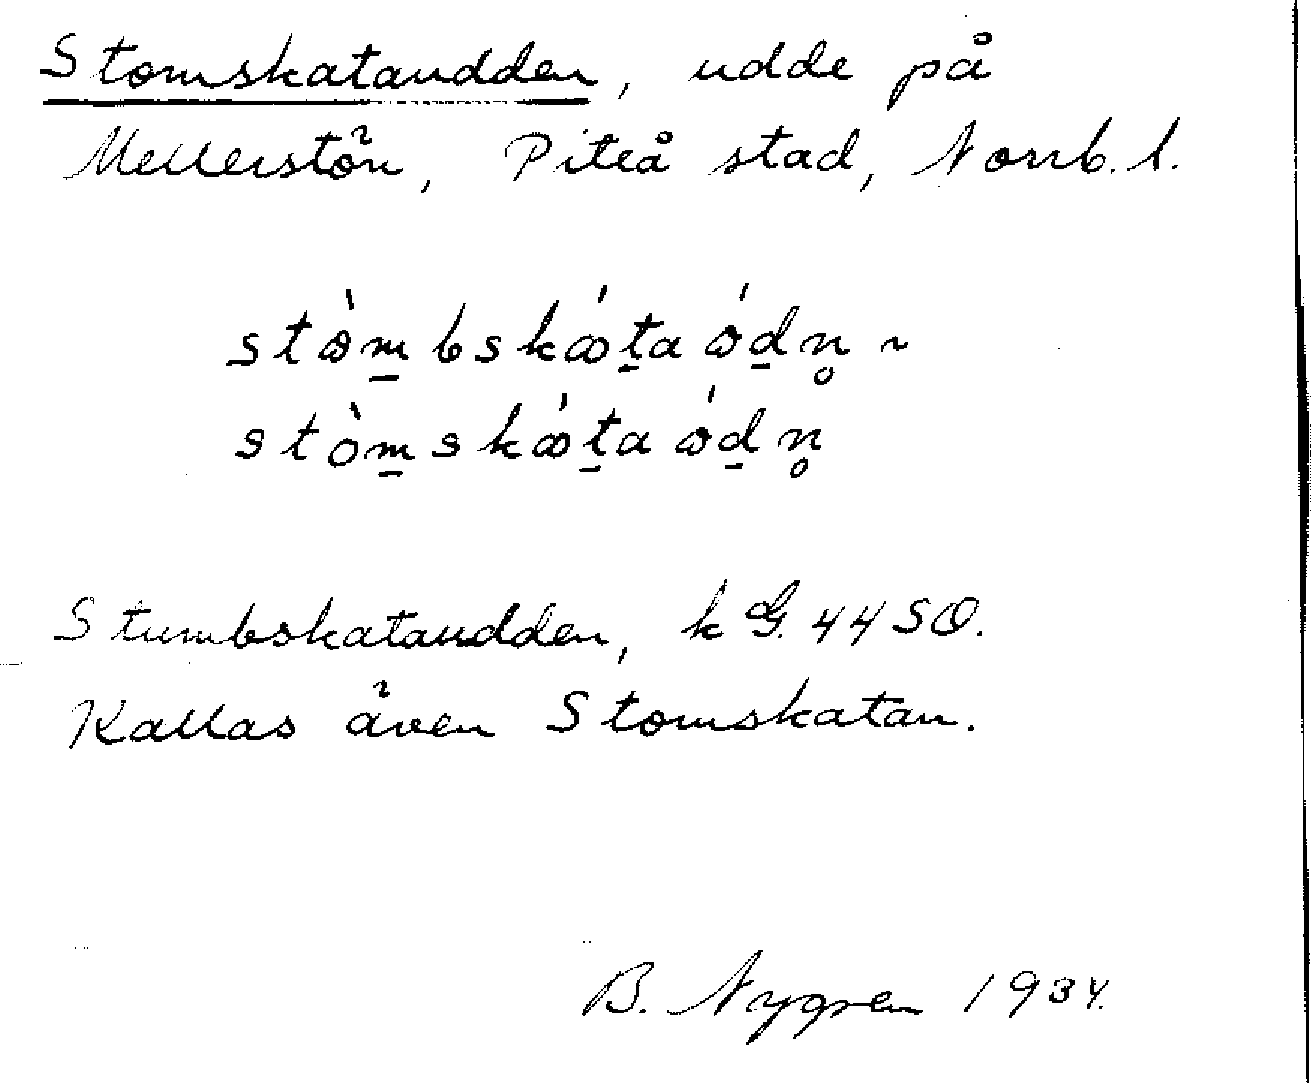 Stomskataudden, udde på
Mellerstön, Piteå stad, Norrb. l.
stòm̱bskǿṯaǿḏn̥ ~
stòm̱skǿṯaǿḏn̥
Stumbskataudden, kG. 44 SO.
Kallas även Stomskatan.
B. Nygren 1934.